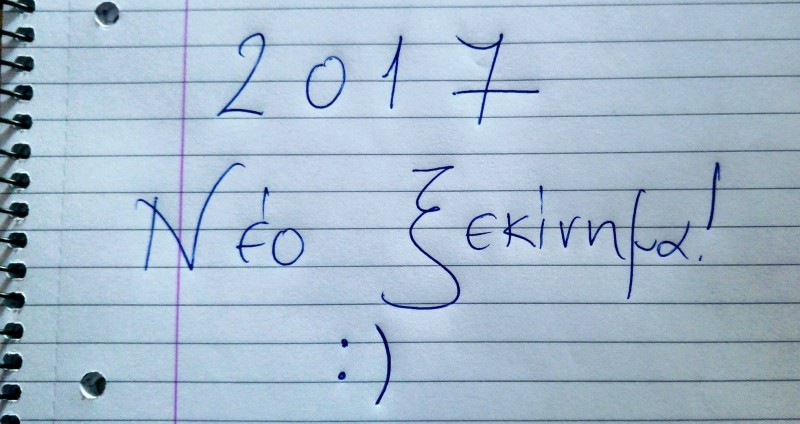 2017
Νέο ξεκίνημα!
:)